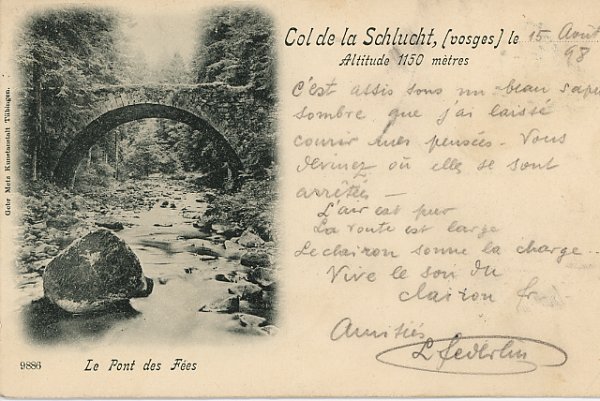 Col de la Schlucht, [vosges] le 15 Août 98
Altitude 1150 mètres
C'est assis sous un beau sapin
sombre que j'ai laissé
courir mes pensées. Vous
devinez où elle se sont
arrêtées —
L'air est pur
La route est large
Le clairon sonne la charge
Vive le son du
clairon
Amitiés
L federlin
Gebr Metz Kunstanstalt Tübingen.
9886 Le Pont des Fées